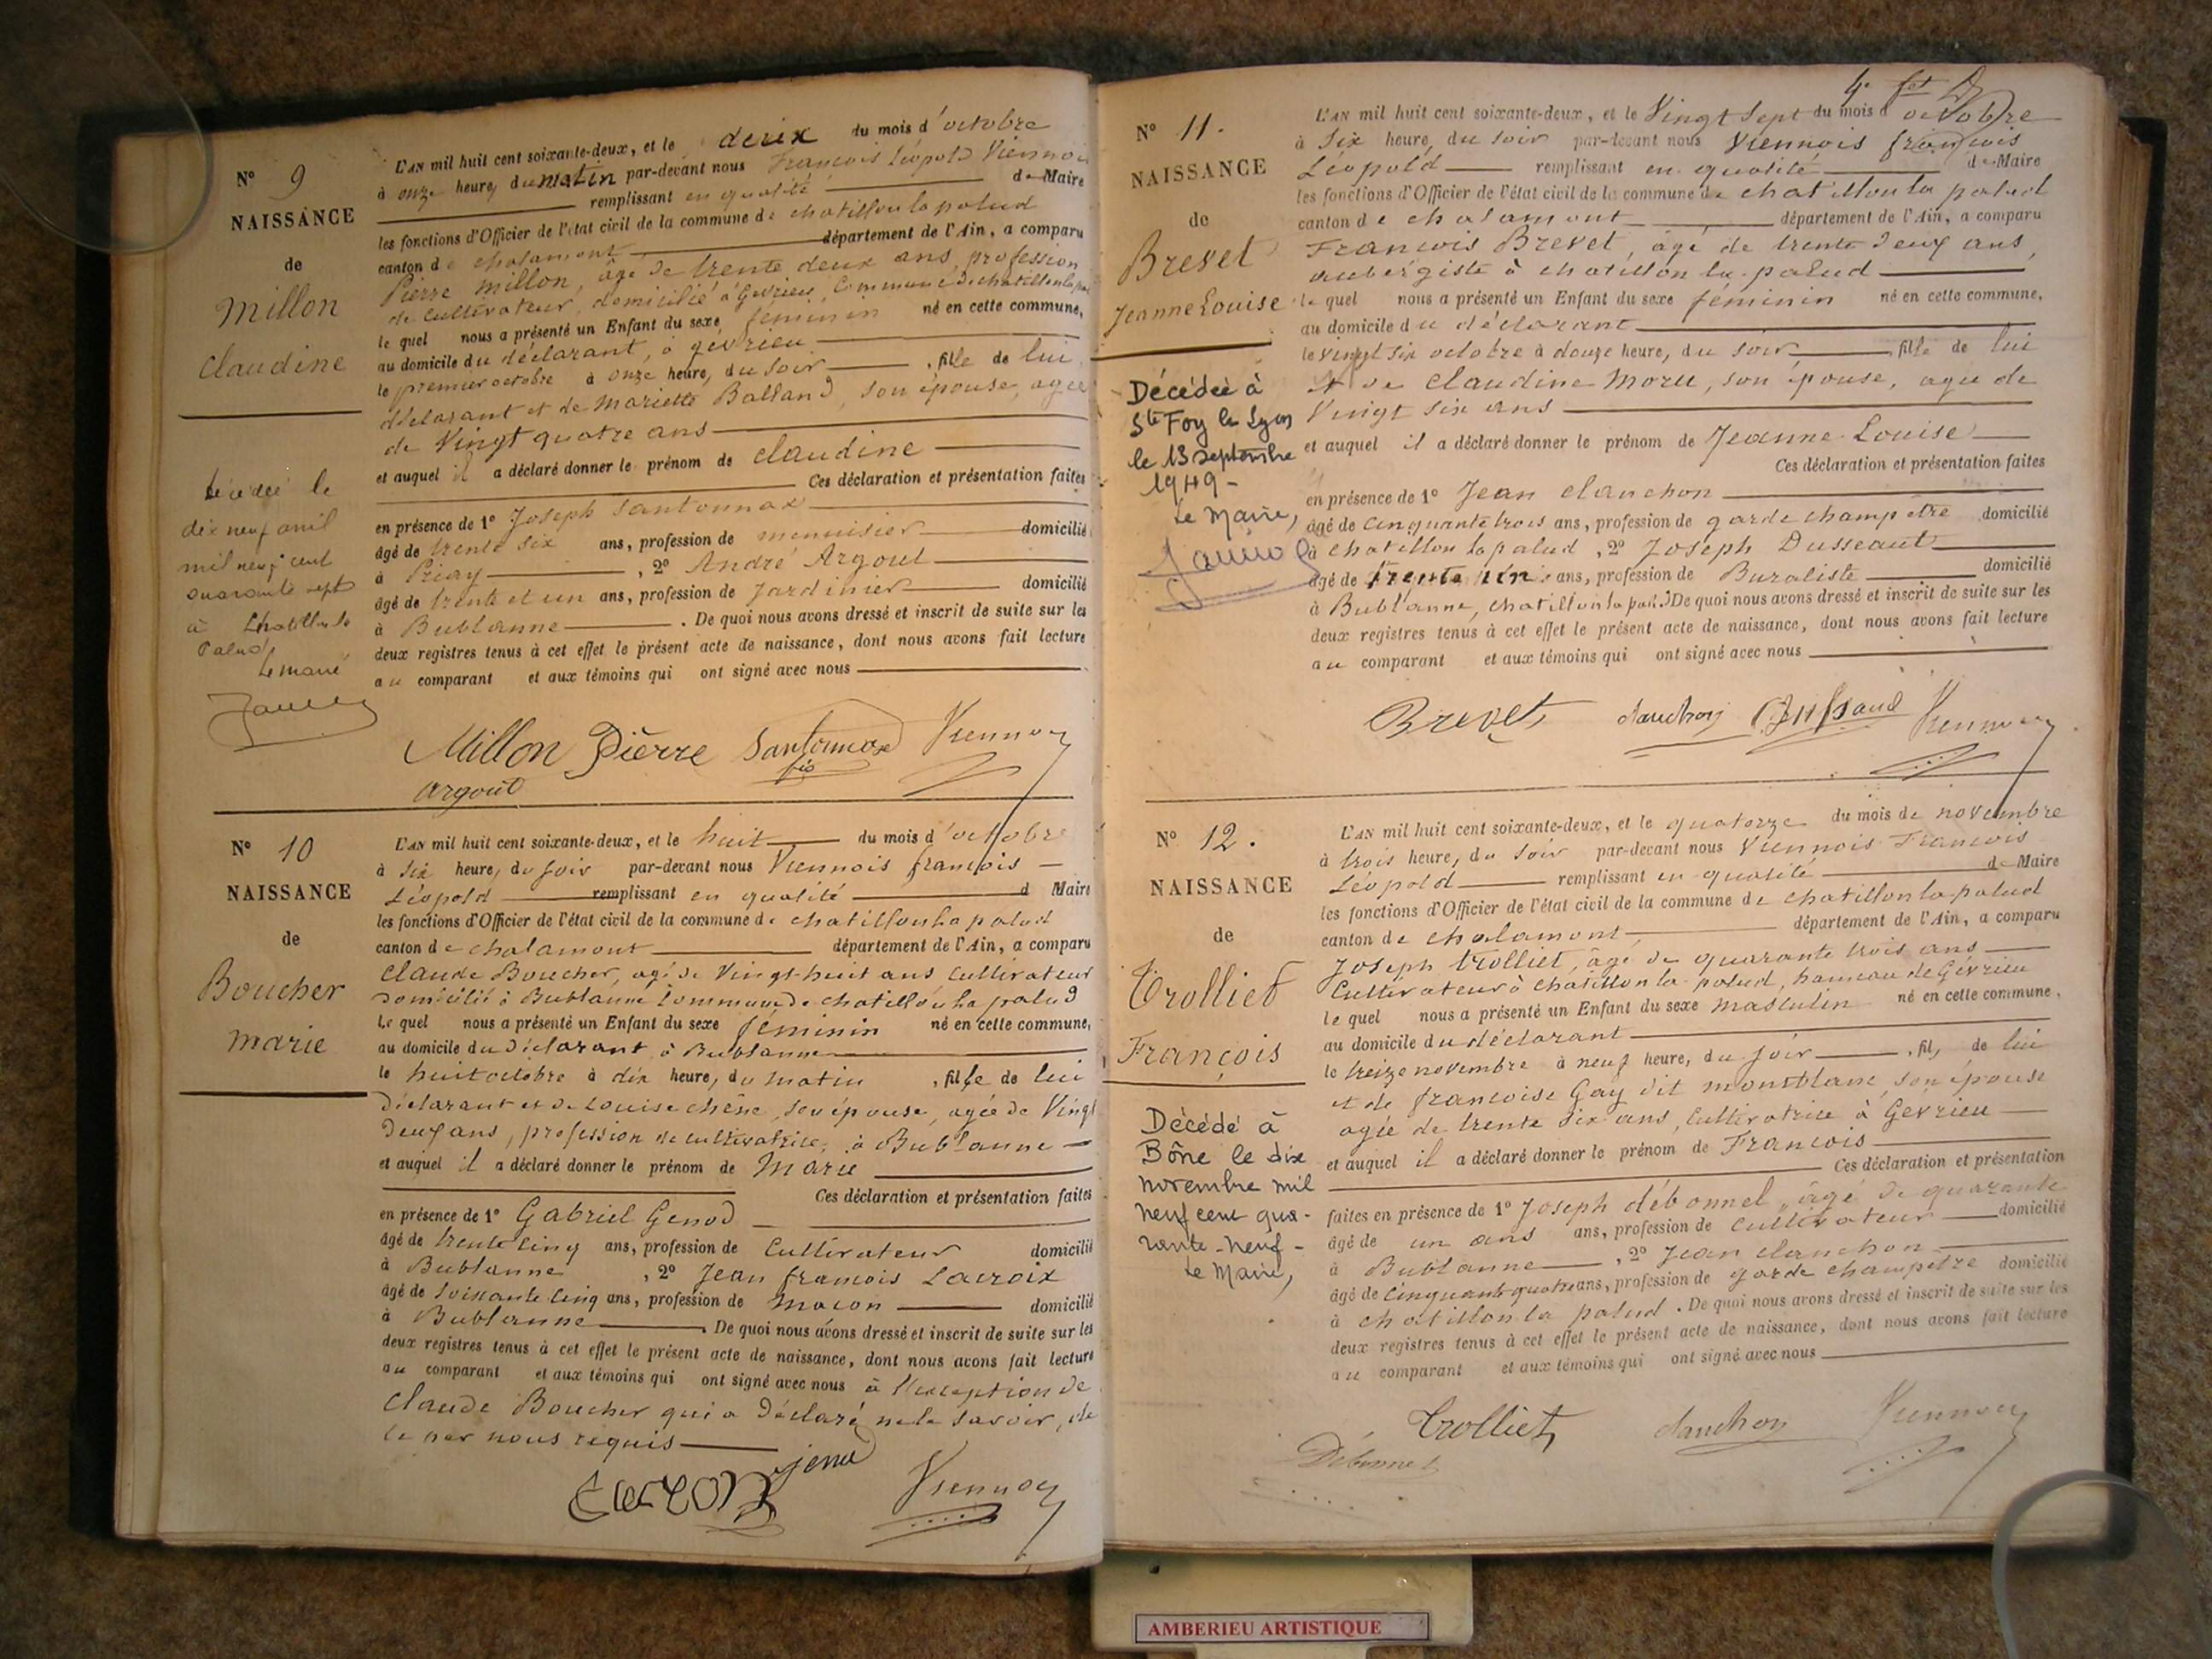 N° 9
NAISSANCE
de
Millon
Claudine
Décédée le
dix neuf avril
mil neuf cent
quarante sept
à Chatillon la
Palud
Le maire
L'AN mil huit cent soixante-deux, et le deux du mois d'octobre
à onze heures du matin par-devant nous François Léopold Viennois
remplissant en qualité de Maire
les fonctions d'Officier de l'état civil de la commune de chatillon la palud
canton de chalamont département de l'Ain, a comparu
Pierre Millon, âgé de trente deux ans, profession
de cultivateur, domicilié à Gevrieu, Commune de chatillon la pal
le quel nous a présenté un Enfant du sexe féminin né en cette commune,
au domicile du déclarant, à gevrieu
le premier octobre à onze heure, du soir, fille de lui
déclarant et de Mariette Balland, son épouse, agée
de Vingt quatre ans
et auquel il a déclaré donner le prénom de claudine
Ces déclaration et présentation faites
en présence de 1° Joseph Santonnax
âgé de trente six ans, profession de menuisier domicilié
à Priay, 2° André Argout
âgé de trente et un ans, profession de Jardinier domicilié
à Bublanne. De quoi nous avons dressé et inscrit de suite sur les
deux registres tenus à cet effet le présent acte de naissance, dont nous avons fait lecture
au comparant et aux témoins qui ont signé avec nous
Millon Pièrre Santonnax Viennois
fio
argout
N° 10
NAISSANCE
de
Boucher
marie
L'AN mil huit cent soixante-deux, et le huit du mois d'octobre
à six heure, du soir par-devant nous Viennois françois
Léopold remplissant en qualité d Maire
les fonctions d'Officier de l'état civil de la commune de chatillon la palud
canton de chalamont département de l'Ain, a comparu
Claude Boucher, agé de Vingt huit ans, cultivateur
domicilié à Bublanne commune de chatillon la palud
Le quel nous a présenté un Enfant du sexe féminin né en cette commune,
au domicile du déclarant à Bublanne
le huit octobre à dix heure, du matin, fille de lui
déclarant et de Louise chêne, son épouse, agée de Vingt
deux ans, profession de cultivatrice, à Bublanne
et auquel il a déclaré donner le prénom de Marie
Ces déclaration et présentation faites
en présence de 1° Gabriel Genod
âgé de trente cinq ans, profession de Cultivateur domicilié
à Bublanne, 2° Jean françois Lacroix
âgé de soixante cinq ans, profession de macon domicilié
à Bublanne. De quoi nous avons dressé et inscrit de suite sur les
deux registres tenus à cet effet le présent acte de naissance, dont nous avons fait lecture
au comparant et aux témoins qui ont signé avec nous à l'exception de
Claude Boucher qui a déclaré ne le savoir, de
ce par nous requis
jenod
Viennois
N° 11.
NAISSANCE
de
Brevet
Jeanne Louise
Décédée à
Ste Foy les Lyon
le 13 septembre
1949 -
Le Maire,
L'AN mil huit cent soixante-deux, et le Vingt Sept du mois d'octobre
à Six heure, du soir par-devant nous Viennois françois
Léopold remplissant en qualité de Maire
les fonctions d'Officier de l'état civil de la commune de chatillon la palud
canton de chalamont département de l'Ain, a comparu
François Brevet, âgé de trente deux ans,
aubergiste à chatillon la palud
le quel nous a présenté un Enfant du sexe féminin né en cette commune,
au domicile du déclarant
le vingt six octobre à douze heure, du soir, fille de lui
et de Claudine Moru, son épouse, agée de
Vingt six ans
et auquel il a déclaré donner le prénom de Jeanne Louise
Ces déclaration et présentation faites
en présence de 1° Jean clanchon
âgé de cinquante trois ans, profession de garde champêtre domicilié
à chatillon la palud, 2° Joseph Dusseaut
âgé de trente un ans, profession de Buraliste domicilié
à Bublanne, chatillon la pal. De quoi nous avons dressé et inscrit de suite sur les
deux registres tenus à cet effet le présent acte de naissance, dont nous avons fait lecture
au comparant et aux témoins qui ont signé avec nous
Brevet clanchon Viennois
N° 12.
NAISSANCE
de
Trolliet
François
Décédé à
Bône le dix
novembre mil
neuf cent qua-
rante-neuf-
Le Maire,
L'AN mil huit cent soixante-deux, et le quatorze du mois de novembre
à trois heure, du soir par-devant nous Viennois François
Léopold remplissant en qualité de Maire
les fonctions d'Officier de l'état civil de la commune de chatillon la palud
canton de chalamont, département de l'Ain, a comparu
Joseph trolliet, âgé de quarante trois ans
Cultivateur à chatillon la palud, hameau de Gévrieu
le quel nous a présenté un Enfant du sexe masculin né en cette commune,
au domicile du déclarant
le treize novembre à neuf heure, du soir, fils de lui
et de francoise Gay dit montblanc, son épouse
agée de trente six ans, cultivatrice à Gevrieu
et auquel il a déclaré donner le prénom de François
Ces déclaration et présentation
faites en présence de 1° Joseph débonnel, âgé de quarante
âgé de un ans ans, profession de Cultivateur domicilié
à Bublanne, 2° Jean clanchon
âgé de cinquante quatre ans, profession de garde champetre domicilié
à chatillon la palud. De quoi nous avons dressé et inscrit de suite sur les
deux registres tenus à cet effet le présent acte de naissance, dont nous avons fait lecture
au comparant et aux témoins qui ont signé avec nous
Trolliet clanchon Viennois
Débonnel
AMBERIEU ARTISTIQUE